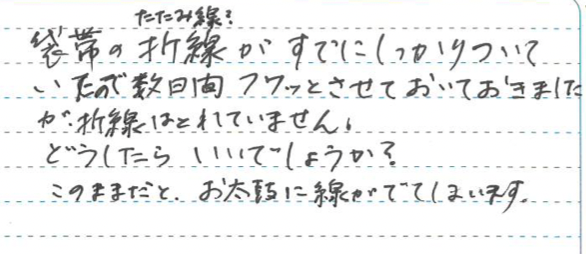 たたみ線?
袋帯の折線がすでにしっかりついて
いたので数日間フワッとさせておいておきました
が、折線はとれていません。
どうしたらいいでしょうか?
このままだと、お太鼓に線がでてしまいます。